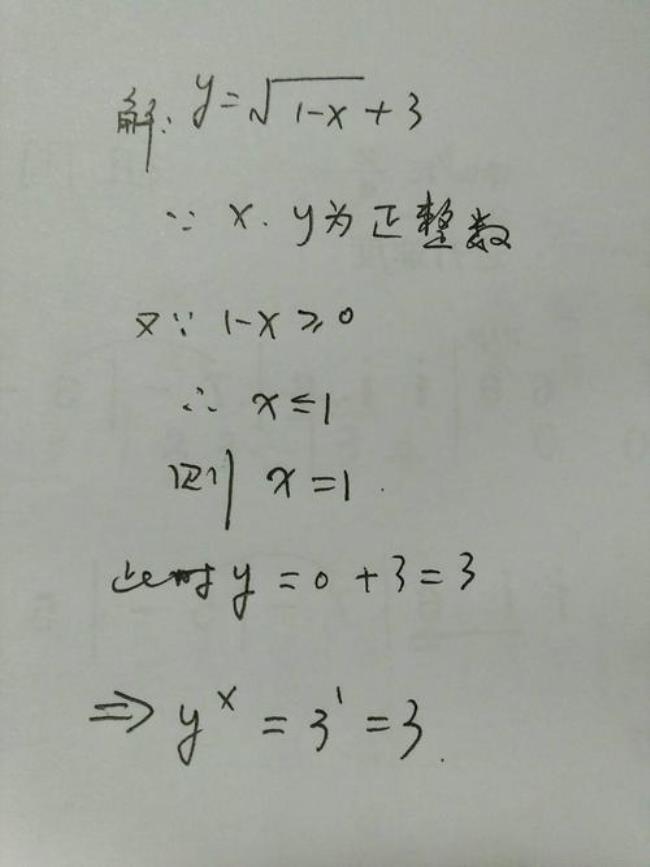 解: y=√(1-x)+3
∵ x. y为正整数
又∵ 1-x≥0
∴ x≤1
则 x=1.
此时 y=0+3=3
⇒ yˣ=3¹=3.